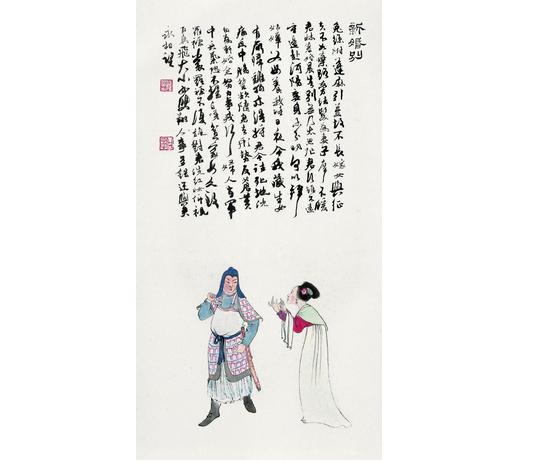 新婚别
兔絲附蓬麻引蔓故不長嫁女與征
夫不如棄路旁結髮為妻子席不煖
君牀暮婚晨告別無乃太匆忙君行雖不遠
守邊赴河陽妾身未分明何以拜
姑嫜父母養我時日夜令我藏生女
有所歸雞狗亦得將君今往死地沈
痛迫中腸誓欲隨君去形勢反蒼黃
勿為新婚念努力事戎行婦人在軍
中兵氣恐不揚自嗟貧家女久致
羅襦裳羅襦不復施對君洗紅妝仰視
百鳥飛大小必雙翔人事多錯迕與君
永相望